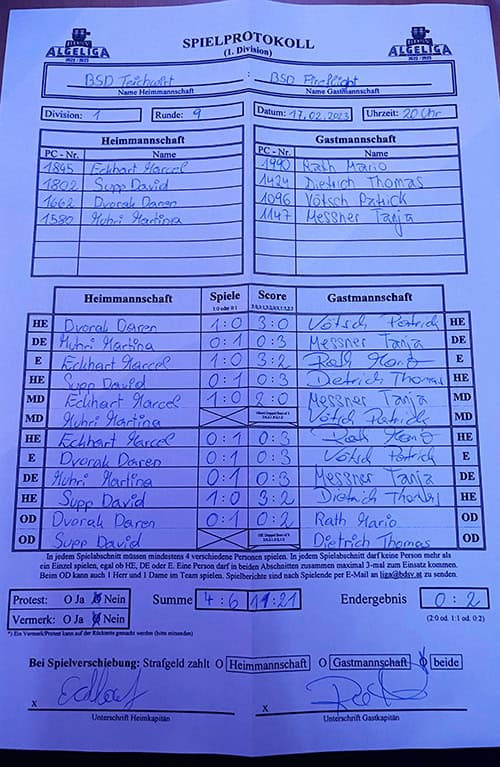 BDSV
ALGELIGA
2022 / 2023
SPIELPROTOKOLL
(1. Division)
BDSV
ALGELIGA
2022 / 2023
BSD Teichwirt : BSD Firefight
Name Heimmannschaft Name Gastmannschaft
Division: 1 Runde: 9 Datum: 17.02.2023 Uhrzeit: 20 Uhr
Heimmannschaft Gastmannschaft
PC - Nr. Name PC - Nr. Name
1845 Eckhart Marcel 1990 Rath Mario
1802 Supp David 1424 Dietrich Thomas
1662 Dvorak Daren 1096 Vötsch Patrick
1580 Muhri Martina 1147 Messner Tanja
Heimmannschaft Spiele Score Gastmannschaft
1:0 oder 0:1
HE Dvorak Daren 1:0 3:0 Vötsch Patrick HE
DE Muhri Martina 0:1 0:3 Messner Tanja DE
E Eckhart Marcel 1:0 3:2 Rath Mario E
HE Supp David 0:1 0:3 Dietrich Thomas HE
MD Eckhart Marcel 1:0 2:0 Messner Tanja MD
MD Muhri Martina Vötsch Patrick MD
HE Eckhart Marcel 0:1 0:3 Rath Mario HE
E Dvorak Daren 0:1 0:3 Vötsch Patrick E
DE Muhri Martina 0:1 0:3 Messner Tanja DE
HE Supp David 1:0 3:2 Dietrich Thomas HE
OD Dvorak Daren 0:1 0:2 Rath Mario OD
OD Supp David Dietrich Thomas OD
In jedem Spielabschnitt müssen mindestens 4 verschiedene Personen spielen. In jedem Spielabschnitt darf keine Person mehr als
ein Einzel spielen, egal ob HE, DE oder E. Eine Person darf in beiden Abschnitten zusammen maximal 3-mal zum Einsatz kommen.
Beim OD kann auch 1 Herr und 1 Dame im Team spielen. Spielberichte sind nach Spielende per E-Mail an liga@bdsv.at zu senden.
Protest: O Ja O Nein Summe 4:6 11:21 Endergebnis 0:2
Vermerk: O Ja O Nein (2:0 od. 1:1 od. 0:2)
*) Ein Vermerk/Protest kann auf der Rückseite gemacht werden (bitte mitsenden)
Bei Spielverschiebung: Strafgeld zahlt O Heimmannschaft O Gastmannschaft O beide
X X
Unterschrift Heimkapitän Unterschrift Gastkapitän